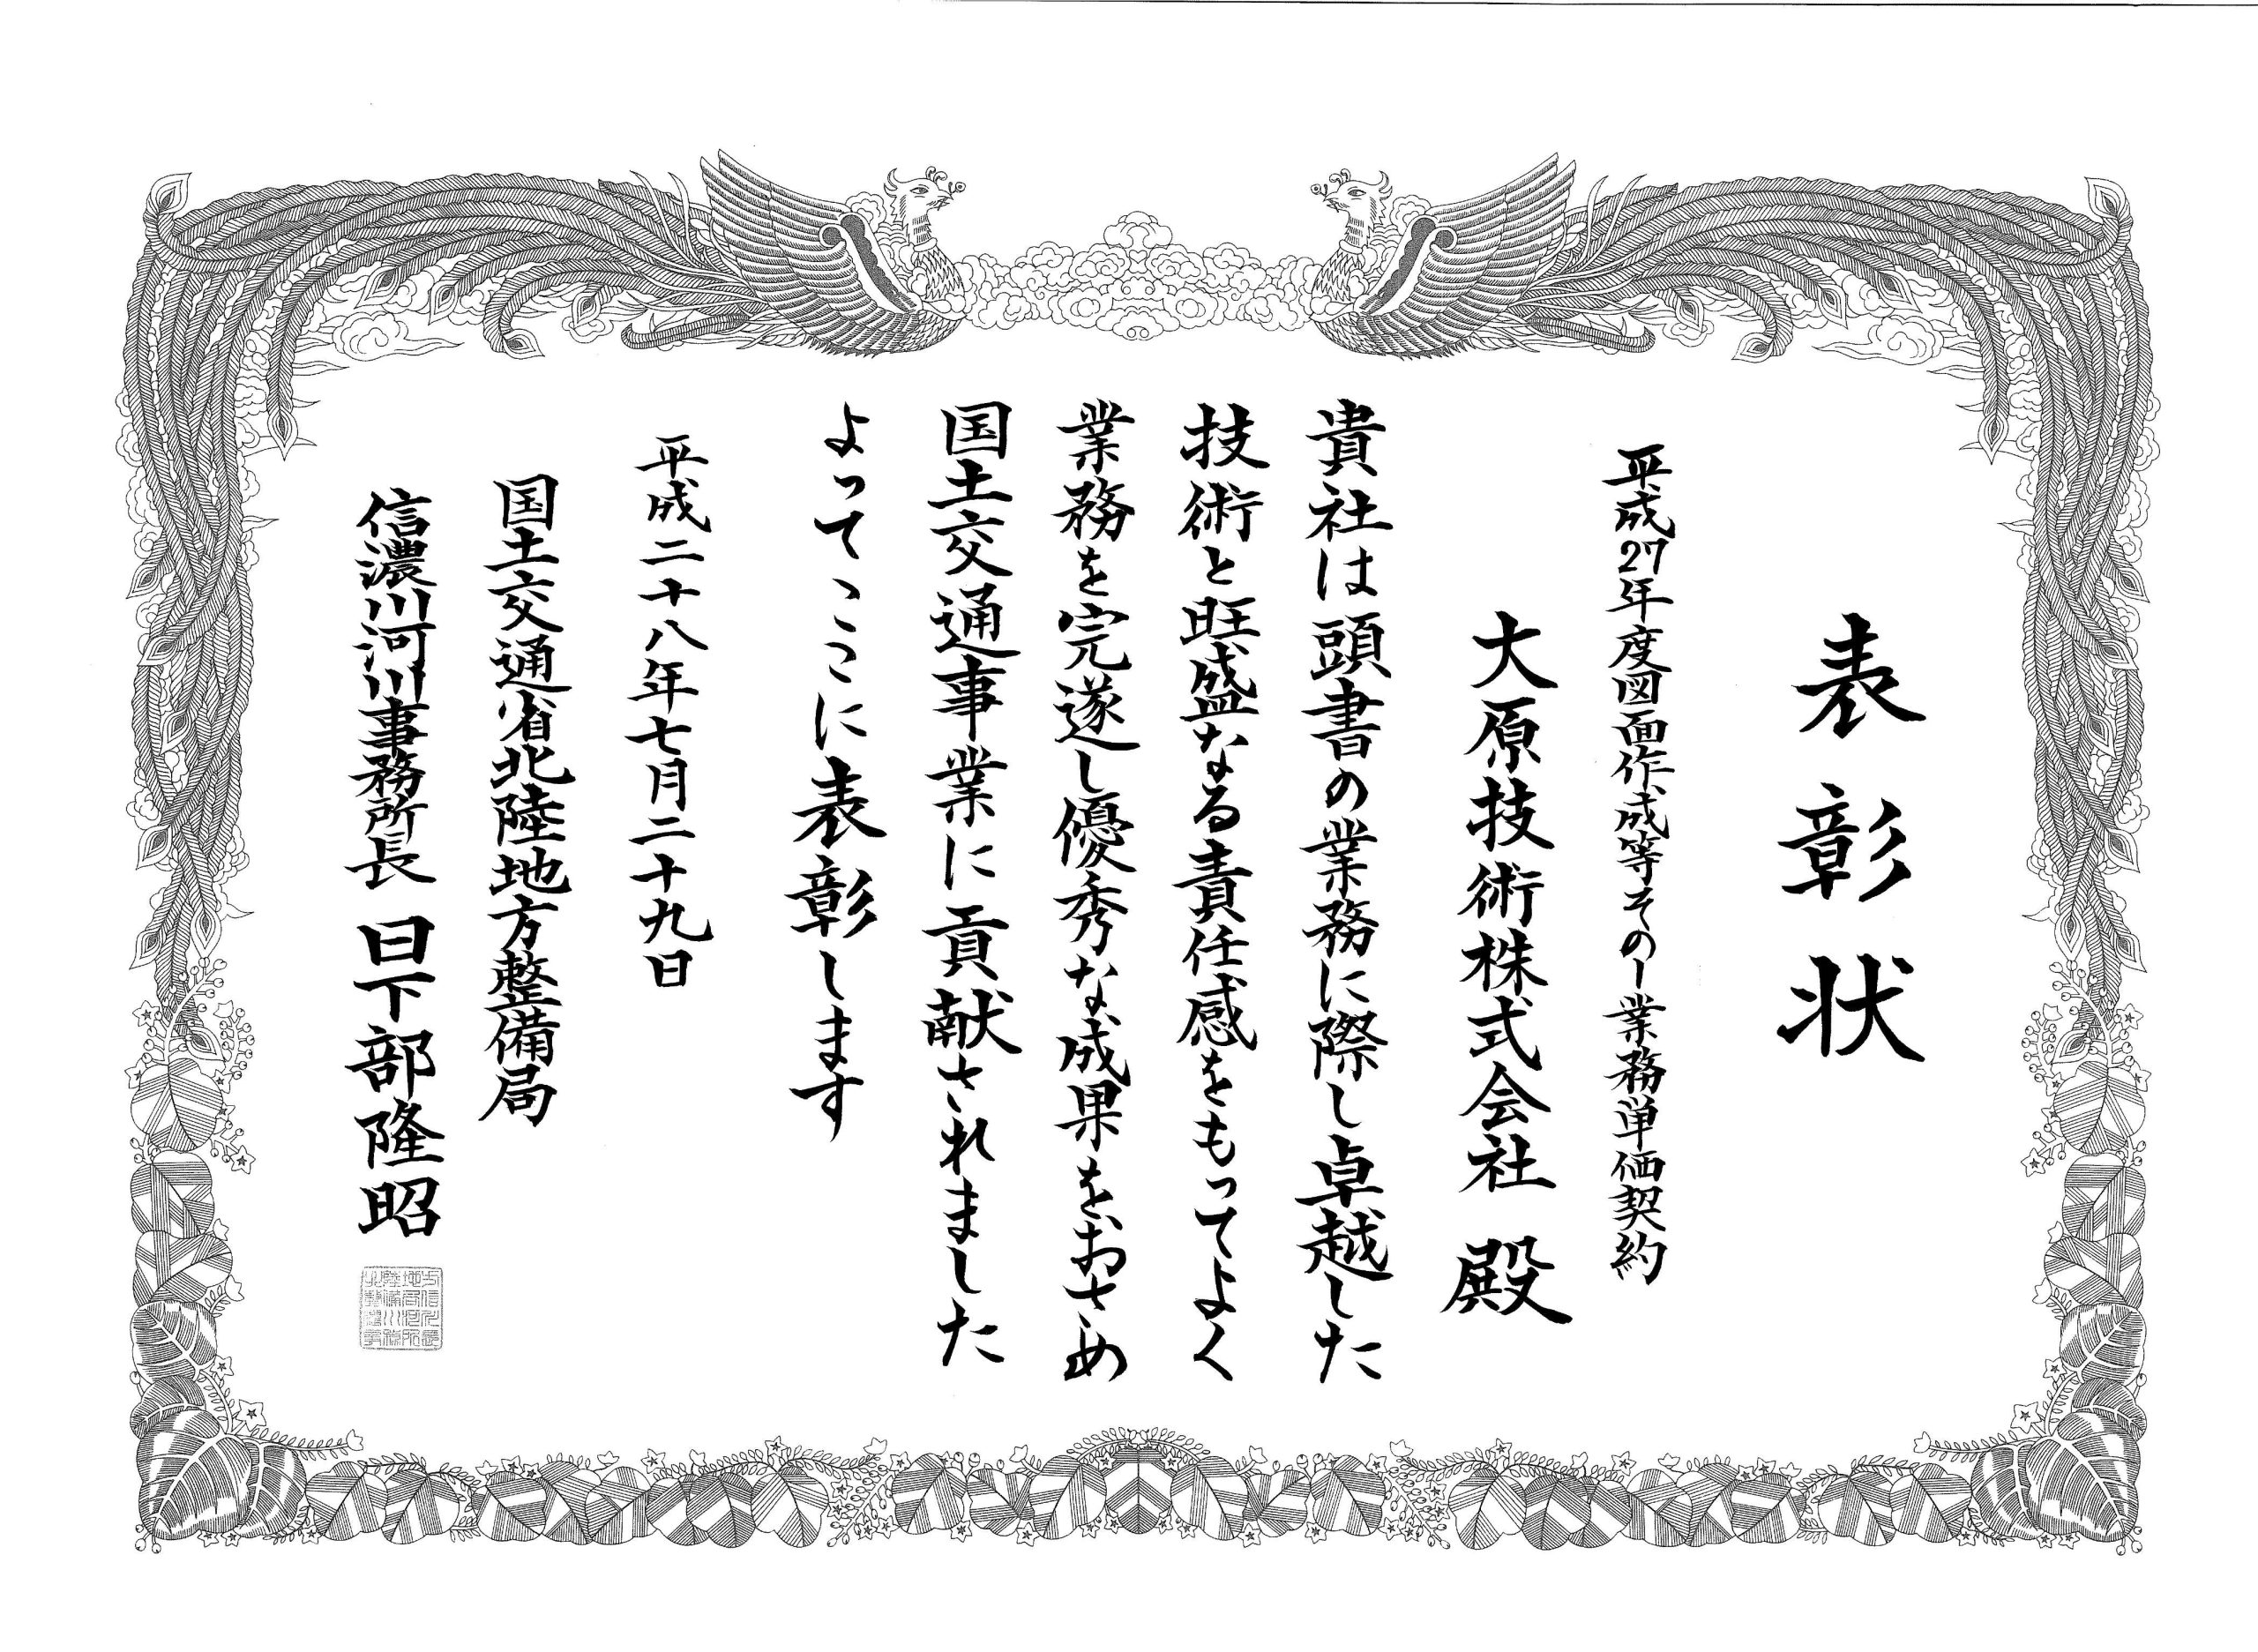 表彰状
平成27年度図面作成等その1業務単価契約
大原技術株式会社 殿
貴社は頭書の業務に際し卓越した
技術と旺盛なる責任感をもってよく
業務を完遂し優秀な成果をおさめ
国土交通事業に貢献されました
よってここに表彰します
平成二十八年七月二十九日
国土交通省北陸地方整備局
信濃川河川事務所長 日下部隆昭